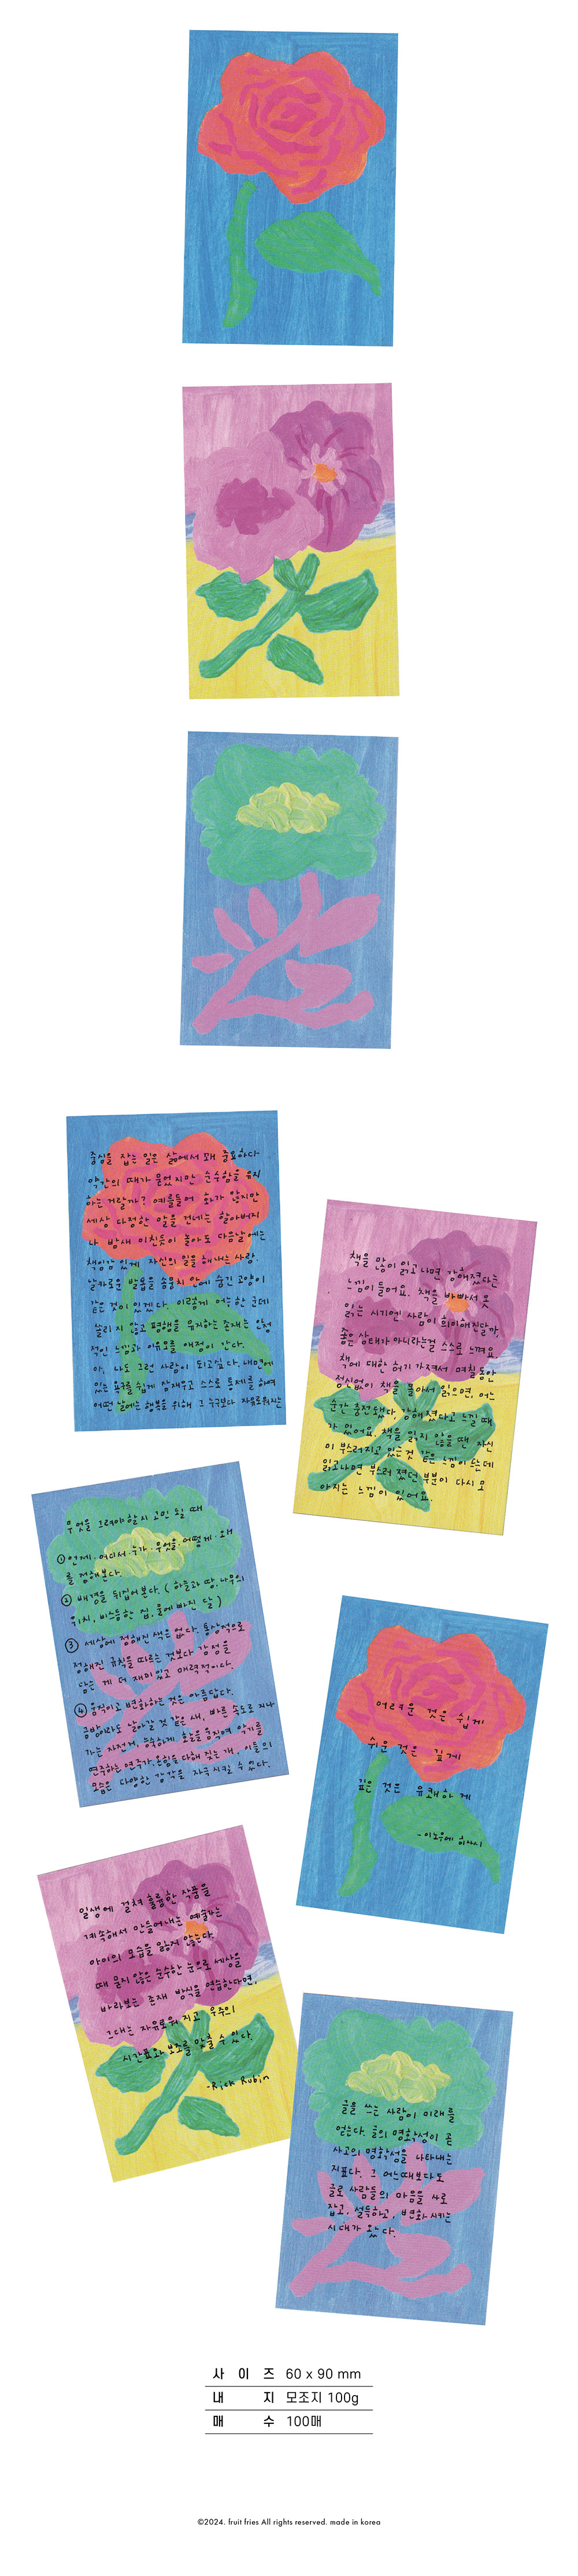 중심을 잡는 일은 삶에서 꽤 중요하다.
약간의 때가 묻었지만 순수함을 유지
하는 거랄까? 예를들어 화가 났지만
세상 다정한 말을 건네는 할아버지
나 밤새 미친듯이 놀아도 다음날에는
책임감 있게 자신의 일을 해내는 사람
날카로운 발톱을 솜뭉치 안에 숨긴 고양이
같은 것이 있겠다. 이렇게 어느 한 군데
쏠리지 않고 평형을 유지하는 존재는 인형
적인 느낌과 아우라를 애정이 간다.
아, 나도 그런 사람이 되고 싶다. 내면에
있는 욕구를 쉽게 잠재우고 스스로 통제를 하며
어떤 날에는 행복을 위해 그 누구보다 자유로워지는
책을 많이 읽고나면 강해졌다는
느낌이 들어요. 책을 바빠서 못
읽는 시기엔 사람이 희미해진달까,
좋은 상태가 아니라는걸 스스로 느껴요.
책에 대한 허기 가져서 며칠동안
정신없이 책을 몰아서 읽으면, 어느
순간 충전됐다, 강해졌다고 느낄 때
가 있어요. 책을 읽지 않을 땐 자신
이 부스러지고 있는것 같은 느낌이 드는데
읽고나면 부스러졌던 부분이 다시 모
아지는 느낌이 있어요.
무엇을 그려야할지 고민 될 때
① 언제·어디서·누가·무엇을·어떻게·왜
를 정해본다.
② 배경을 뒤집어본다. (하늘과 땅, 나무의
위치, 비스듬한 집, 물에 빠진 달)
③ 세상에 정해진 색은 없다. 통상적으로
정해진 규칙을 따르는 것보다 감정을
담는 게 더 재미있고 매력적이다.
④ 움직이고 변화하는 것은 아름답다.
금방이라도 날아갈 것 같은 새, 빠른 속도로 지나
가는 자전거, 능숙하게 손을 움직여 악기를
연주하는 연주가, 위험을 향해 짖는 개, 이들의
모습은 다양한 감각을 자극 시킬 수 있다.
어려운 것은 쉽게
쉬운 것은 깊게
깊은 것은 유쾌하게
-이노우에 히사시
일생에 걸쳐 훌륭한 작품을
계속해서 만들어내는 예술가는
아이의 모습을 잃지 않는다.
때 묻지 않은 순수한 눈으로 세상을
바라보는 존재 방식을 연습한다면,
그대는 자유로워지고 우주의
시간표와 보조를 맞출 수 있다.
-Rick Rubin
글을 쓰는 사람이 미래를
얻는다. 글의 명확성이 곧
사고의 명확성을 나타내는
지표다. 그 어느때보다도
글로 사람들의 마음을 사로
잡고, 설득하고, 변화 시키는
시대가 왔다.
사이즈 60 x 90 mm
내지 모조지 100g
매수 100매
©2024. fruit fries All rights reserved. made in korea